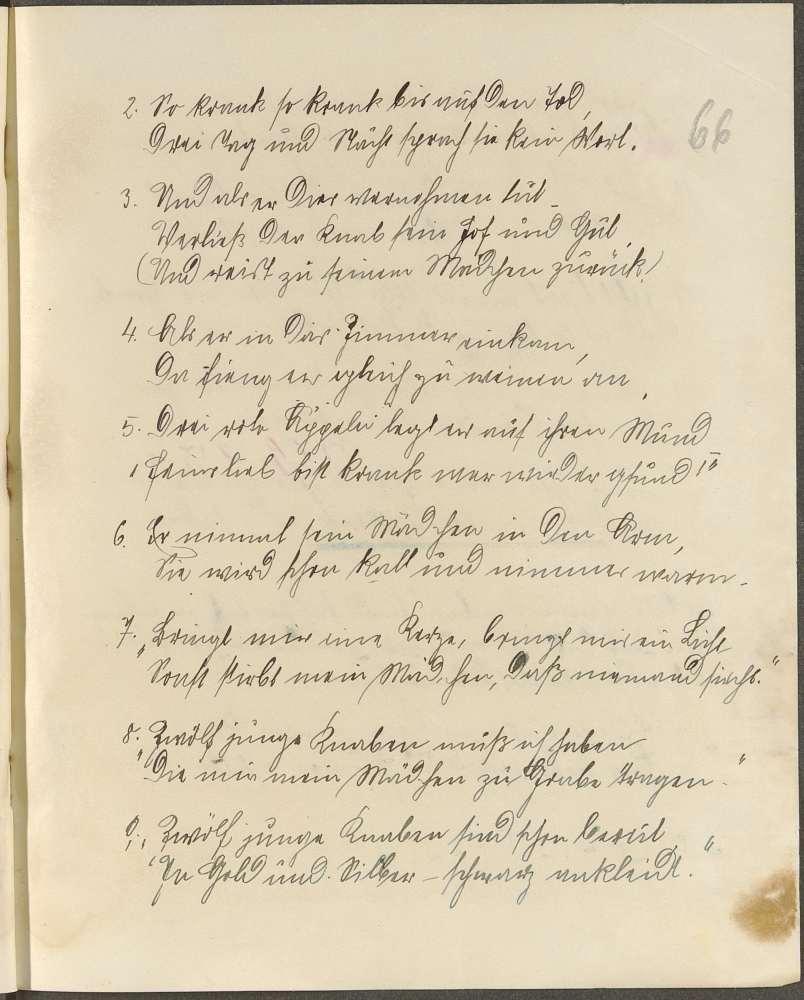 66
2. So krank so krank bis auf den Tod,
Drei Tag und Nächt sprach sie kein Wort.
3. Und als er dies vernehmen tut
Verließ der Knab sein Hof und Gut,
(Und reist zu seinem Mädchen zurück)
4. Als er in das Zimmer einkam,
Da fieng er gleich zu weinen an,
5. Drei rote Äppelei legt er auf ihren Mund
"Feinslieb bist krank wer wieder gsund!"
6. Er nimmt sein Mädchen in den Arm,
Sie wird schon kalt und nimmer warm.
7. "Bringt mir eine Kerze, bringt mir ein Licht
Sonst stirbt mein Mädchen, daß niemand siecht."
8. Zwölf junge Knaben muß ich haben
"Die mir mein Mädchen zu Grabe tragen."
9. Zwölf junge Knaben sind schon bereit
"In Gold und Silber – schwarz ankleidt."